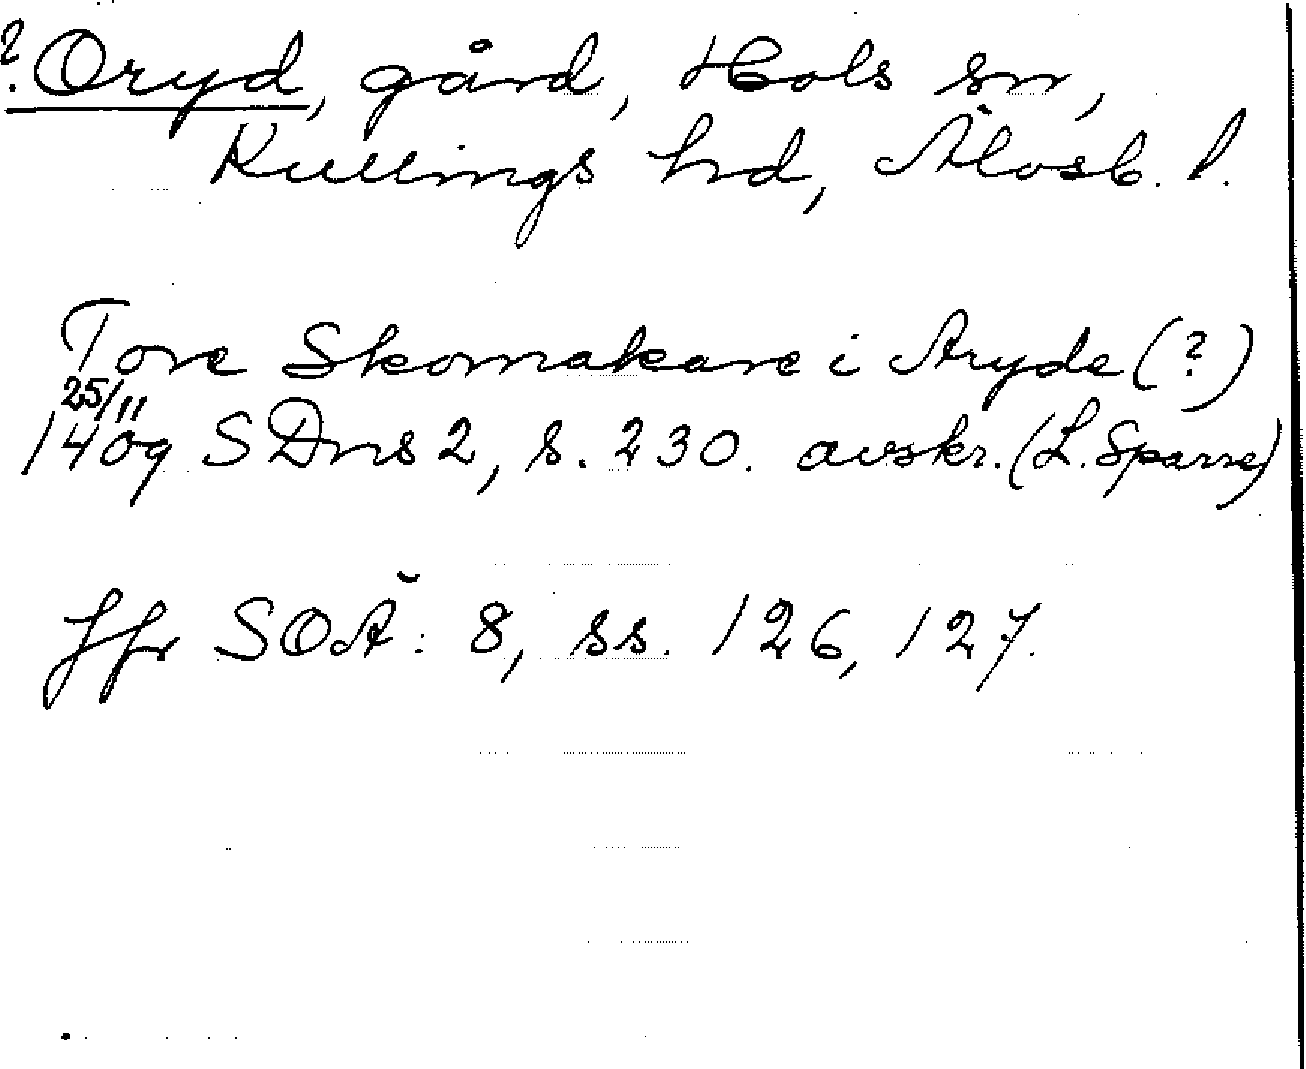 ? Oryd, gård, Hols sn,
Kullings hd, Älvsb. l.
Tore Skomakare i Aryde (?)
25/11
1409 SDns 2, s. 230. avskr. (L. Sparre)
Jfr SOÄ: 8, ss. 126, 127.